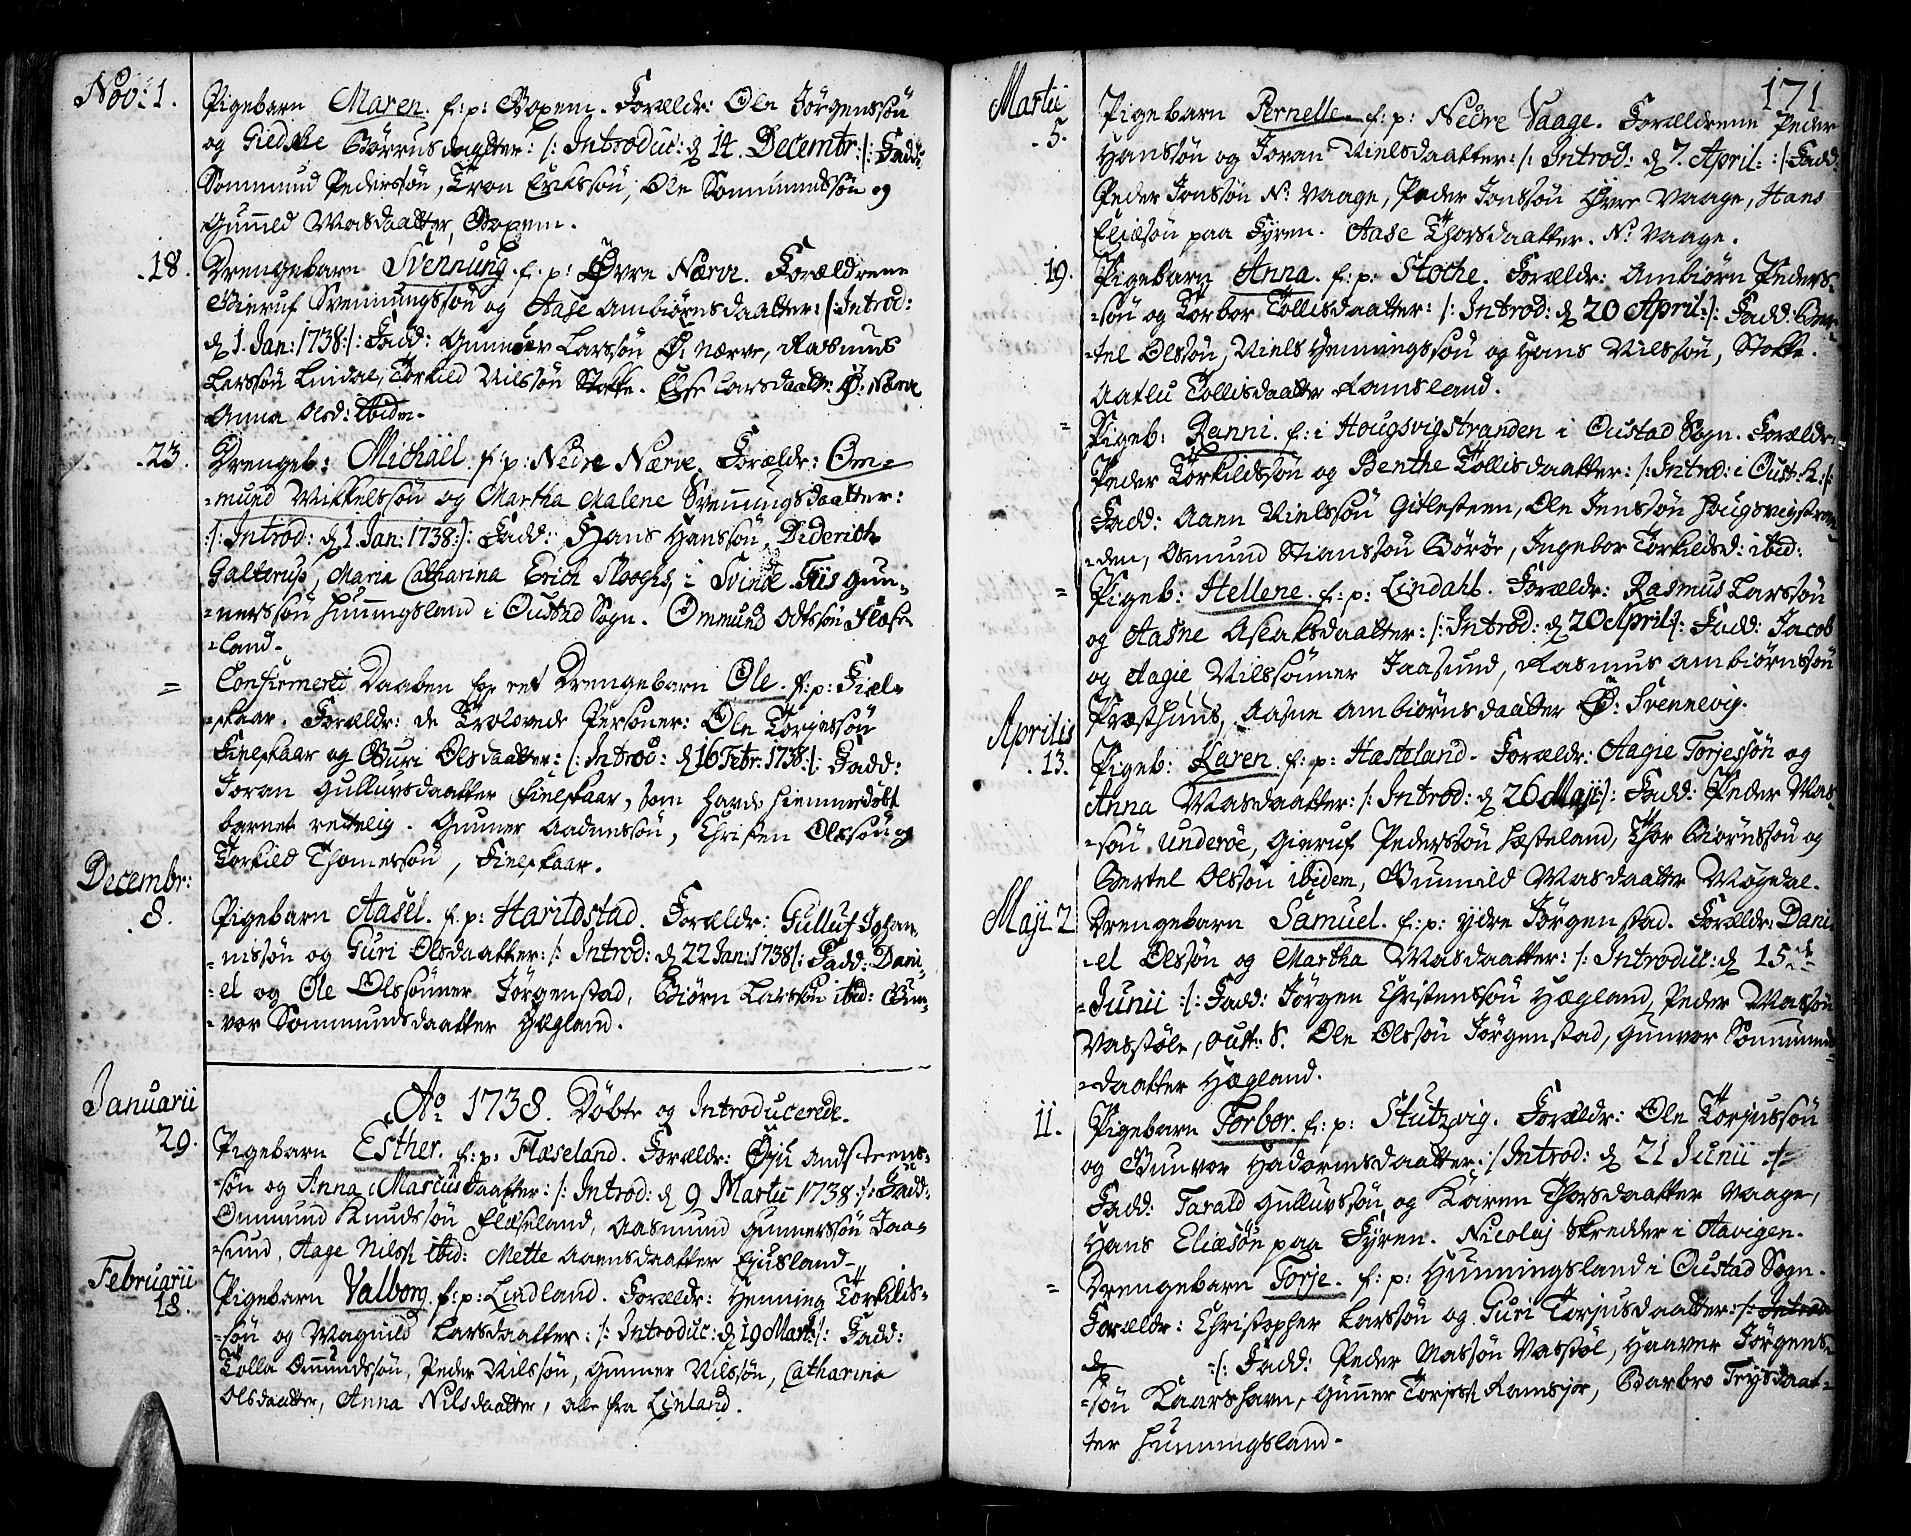 Nov: 1.
Pigebarn Maren. f: p: Boxem. Forældr: Ole Jörgenssön
og Giedske Börrusdaatter: /: Introduc: d 14. Decembr: /: Fadd:
Sommund Pederssön, Tron Erikssön, Ole Sommundssön og
Gunild Masdaatter, Boxem.
18. Drengebarn Svennung. f. p: Øvre Nærve. Forældrene
Gieruf Svennungssön og Aase Ambiörnsdaatter: /: Introd:
d 1. Jan: 1738 :/: Fadd: Gunner Larssön Ø: Nærve, Rasmus
Larssön Lindal, Torkild Nilssön Stokke. Else Larsdaatter Ø: Nærve
Anna Olsd: ibidm.
23. Drengeb: Michäel. f: p: Nedre Nærve. Forældr: Om-
-mund Mikkelssön og Martha Malene Svennungsdaatter:
:/: Introd: d 1 Jan: 1738 :/: Fadd: Hans Hanssön, Diderich
Galterup, Maria Catharina Erich i Svinöe. Tiis Gun-
-nerssön Hunningsland i Oustad Sogn. Ommund Odtssön Flæse-
-land.
= Confirmeret Daaben for eet Drengebarn Ole. f: p: Fiel-
-skaar. Forældr: de Trolovede Personer: Ole Torjussön
Fielskaar og Guri Olsdaatter: /: Introd: d 16 Febr: 1738 :/: Fadd:
Joran Gulluvsdaatter Fielskaar, som havde hiemmedöbt
barnet rettelig. Gunner Aadnessön, Christen Olssön og
Torkild Thomessön, Fielskaar.
Decembr:
8. Pigebarn Aasel. f. p: Harildstad. Forældr: Gulluf Johan-
-nissön og Guri Olsdaatter: /: Introd: d 22 Jan: 1738 /: Fadd: Dani-
-el og Ole Olssönner Jörgenstad, Biörn Larssön ibid: Gun-
-vor Sommundsdaatter Hægland.
Ao 1738. Döbte og Introducerede.
Januarii
29. Pigebarn Esther. f: p: Flæseland. Forældr: Andsteens-
-sön og Anna Marcusdaatter: /: Introd: d 9 Martii 1738 :/: Fadd:
Ommund Knudssön Flæseland, Aasmund Gunnerssön Jaa-
-sund, Aage Nilss: ibid: Mette Aaensdaatter Eiusland-
Februarii
18. Pigebarn Valborg. f: p: Lindland. Forældr: Henning Torkilds-
-sön og Magnild Larsdaatter: /: Introduc: d 19 Mart: /: Fadd:
Tolla Ommundssön, Peder Nilssön, Gunner Nilssön, Catharina
Olsdaatter, Anna Nilsdaatter, alle fra Linland.
171
Martii
5. Pigebarn Pernelle. f: p: Nedre Vaage. Forældrene Peder
Hanssön og Joran Nielsdaatter: /: Introd: d 7. April: :/ Fadd:
Peder Jonssön N: Vaage, Peder Jonssön Øvre Vaage, Hans
Eliæsön paa Fyren. Aase Thorsdaatter. N: Vaage.
19. Pigebarn Anna. f: p: Stoche. Forældr: Ambiörn Peders-
-sön og Torbor Tollisdaatter: /: Introd: d 20 April: /: Fadd: Ber-
-tel Olssön, Niels Henningssön og Hans Nilssön, Stokke.
Aatlu Tollisdaatter Ramsland.
= Pigeb: Ranni. f: i Hougsvigstranden i Oustad Sogn. Forældr:
Peder Torkildssön og Benthe Tollisdaatter: /: Introd: i Oust: K: /:
Fadd: Aaen Nielssön Gitlesteen, Ole Jenssön Hougsvigstran-
-den, Osmund Stianssön Börör, Ingebor Torkildsd: ibid:
= Pigeb: Hellene. f: p: Lindahl. Forældr: Rasmus Larssön
og Aasne Aslaksdaatter: /: Introd: d 20 April: /: Fadd: Jacob
og Aagie Nilssönner Jaasund, Rasmus Ambiörnssön
Præsthuus, Aasne Ambiörnsdaatter Ø: Svennevig.
Aprilis
13. Pigeb: Karen. f: p: Hasteland. Forældr: Aagie Torjessön og
Anna Masdaatter: /: Introd: d 26 Maji /: Fadd: Peder Mas-
-sön Underöe, Gieruf Pederssön Hæsteland, Thor Biörnssön og
Bertel Olssön ibidem, Gunnild Masdaatter Mögedal.
Maji 2 Drengebarn Samuel. f: p: Ydre Jörgenstad. Forældr: Dani-
-el Olssön og Martha Masdaatter: /: Introduc: d 15de
-Junii :/: Fadd: Jörgen Christenssön Hægland, Peder Massön
Vasstöle, Oust: S. Ole Olssön Jörgenstad, Gunvor Sommunds-
-daatter Hægland.
11. Pigebarn Torbor. f: p: Stutzvig. Forældr: Ole Torjussön
og Gunvor Hadormsdaatter: / Introd: d 21 Junii :/:
Fadd: Tarald Gulluvssön og Karen Thorsdaatter Vaage,
Hans Eliæsön paa Fyren. Nicolaj Skredder i Aavigen.
= Drengebarn Torje. f: p: Hunningsland i Oustad Sogn.
Forældr: Christopher Larssön og Guri Torjusdaatter: /: Introd:
d -/: Fadd: Peder Massön Vasstöl, Haaver Jörgens-
-sön Kaarshavn, Gunner Torjess: Ramsjor, Barbro Trysdaat-
-ter Hunningsland.